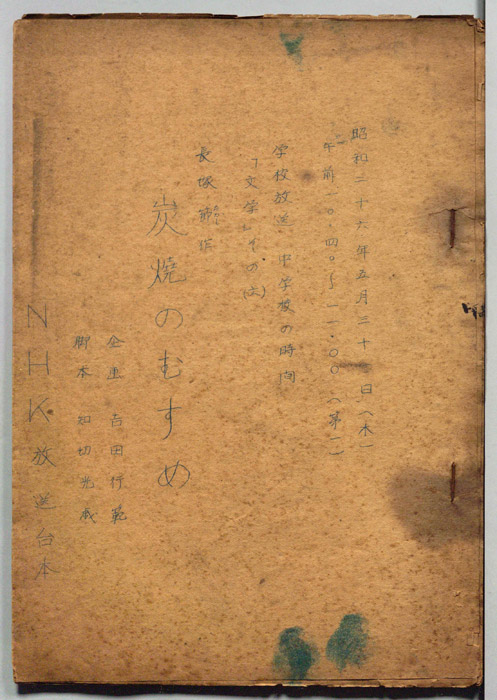 昭和二十六年五月三十一日(木)
午前一〇・四〇〜一一・〇〇(第一)
学校放送 中学校の時間
「文学」その(六)
長塚節作
炭燒のむすめ
企画 吉田行範
脚本 知切光歳
NHK放送台本